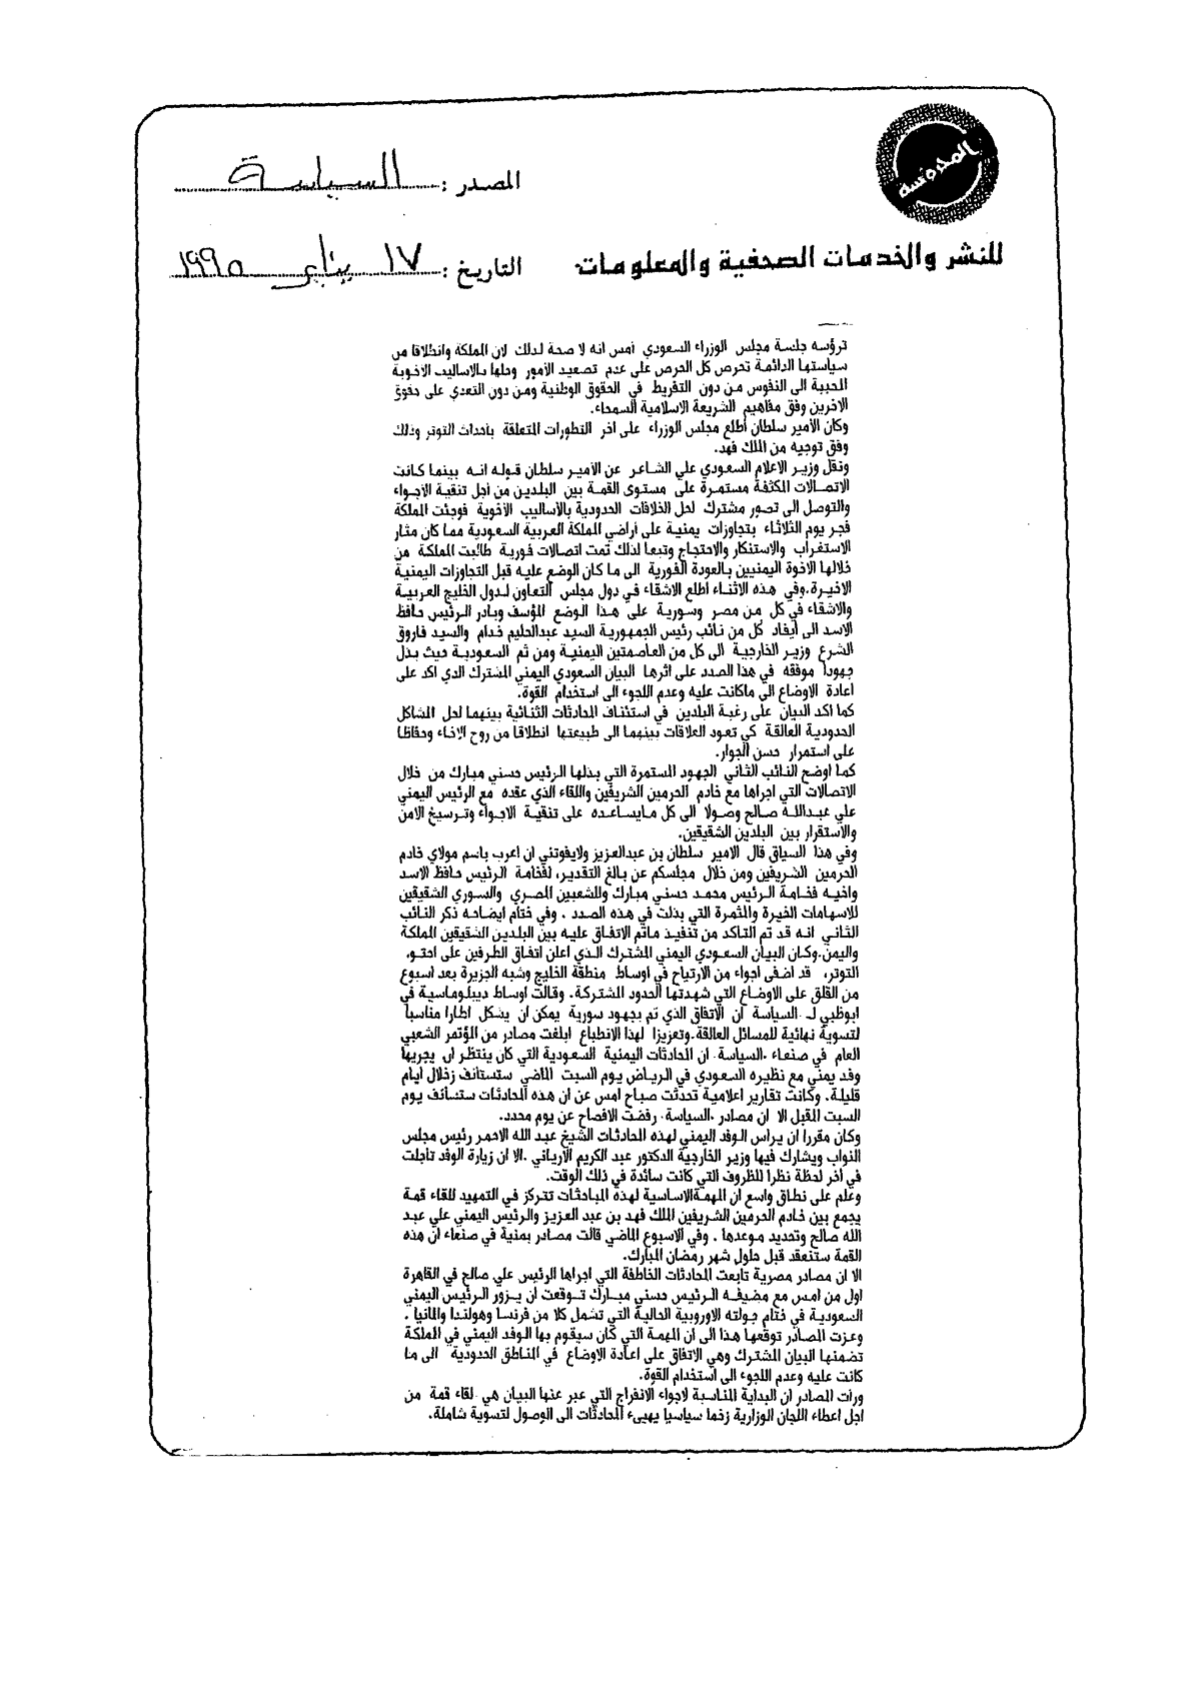 المحروسة
المصدر : السياسة
للنشر والخدمات الصحفية والمعلومات
التاريخ : ١٧ يناير ١٩٩٥
ترؤسه جلسة مجلس الوزراء السعودي أمس انه لا صحة لذلك لان المملكة وانطلاقا من
سياستها الدائمة تحرص كل الحرص على عدم تصعيد الأمور وحلها بالاساليب الاخوية
المحببة الى النفوس من دون التفريط في الحقوق الوطنية ومن دون التعدي على حقوق
الاخرين وفق مفاهيم الشريعة الاسلامية السمحاء.
وكان الأمير سلطان أطلع مجلس الوزراء على اخر التطورات المتعلقة بأحداث التوتر وذلك
وفق توجيه من الملك فهد.
ونقل وزير الاعلام السعودي علي الشاعر عن الأمير سلطان قوله انه بينما كانت
الاتصالات المكثفة مستمرة على مستوى القمة بين البلدين من أجل تنقية الأجواء
والتوصل الى تصور مشترك لحل الخلافات الحدودية بالأساليب الأخوية فوجئت المملكة
فجر يوم الثلاثاء بتجاوزات يمنية على أراضي المملكة العربية السعودية مما كان مثار
الاستغراب والاستنكار والاحتجاج وتبعا لذلك تمت اتصالات فورية طالبت المملكة من
خلالها الاخوة اليمنيين بالعودة الفورية الى ما كان الوضع عليه قبل التجاوزات اليمنية
الاخيرة.وفي هذه الاثناء أطلع الاشقاء في دول مجلس التعاون لدول الخليج العربية
والاشقاء في كل من مصر وسورية على هذا الوضع المؤسف وبادر الرئيس حافظ
الاسد الى ايفاد كل من نائب رئيس الجمهورية السيد عبدالحليم خدام والسيد فاروق
الشرع وزير الخارجية الى كل من العاصمتين اليمنية ومن ثم السعودية حيث بذل
جهودا موفقه في هذا الصدد على اثرها البيان السعودي اليمني المشترك الذي اكد على
اعادة الاوضاع الى ماكانت عليه وعدم اللجوء الى استخدام القوة.
كما اكد البيان على رغبة البلدين في استئناف المحادثات الثنائية بينهما لحل المشاكل
الحدودية العالقة كي تعود العلاقات بينهما الى طبيعتها انطلاقا من روح الإخاء وحفاظا
على استمرار حسن الجوار.
كما أوضح النائب الثاني الجهود المستمرة التي بذلها الرئيس حسني مبارك من خلال
الاتصالات التي اجراها مع خادم الحرمين الشريفين واللقاء الذي عقده مع الرئيس اليمني
علي عبدالله صالح وصولا الى كل مايساعده على تنقية الاجواء وترسيخ الامن
والاستقرار بين البلدين الشقيقين.
وفي هذا السياق قال الامير سلطان بن عبدالعزيز ولايفوتني ان اعرب باسم مولاي خادم
الحرمين الشريفين ومن خلال مجلسكم عن بالغ التقدير، لفخامة الرئيس حافظ الاسد
واخيه فخامة الرئيس محمد حسني مبارك وللشعبين المصري والسوري الشقيقين
للاسهامات الخيرة والمثمرة التي بذلت في هذه الصدد . وفي ختام ايضاحه ذكر النائب
الثاني انه قد تم التاكد من تنفيذ ماتم الاتفاق عليه بين البلدين الشقيقين المملكة
واليمن.وكان البيان السعودي اليمني المشترك الذي اعلن اتفاق الطرفين على احتو،
التوتر، قد اضفى اجواء من الارتياح في اوساط منطقة الخليج وشبه الجزيرة بعد اسبوع
من القلق على الاوضاع التي شهدتها الحدود المشتركة. وقالت اوساط ديبلوماسية في
ابوظبي لـ السياسة ان الاتفاق الذي تم بجهود سورية يمكن ان يشكل اطارا مناسبا
لتسوية نهائية للمسائل العالقة.وتعزيزا لهذا الانطباع ابلغت مصادر من المؤتمر الشعبي
العام في صنعاء .السياسة. ان المحادثات اليمنية السعودية التي كان ينتظر ان يجريها
وفد يمني مع نظيره السعودي في الرياض يوم السبت الماضي ستستأنف زخلال ايام
قليلة. وكانت تقارير اعلامية تحدثت صباح امس عن ان هذه المحادثات ستسانف يوم
السبت المقبل الا ان مصادر .السياسة. رفضت الافصاح عن يوم محدد.
وكان مقررا ان يراس الوفد اليمني لهذه المحادثات الشيخ عبد الله الاحمر رئيس مجلس
النواب ويشارك فيها وزير الخارجية الدكتور عبد الكريم الأرياني .الا ان زيارة الوفد تأجلت
في اخر لحظة نظرا للظروف التي كانت سائدة في ذلك الوقت.
وعلم على نطاق واسع ان المهمةالاساسية لهذه المباحثات تتركز في التمهيد للقاء قمة
يجمع بين خادم الحرمين الشريفين الملك فهد بن عبد العزيز والرئيس اليمني علي عبد
الله صالح وتحديد موعدها . وفي الاسبوع الماضي قالت مصادر يمنية في صنعاء ان هذه
القمة ستنعقد قبل حلول شهر رمضان المبارك.
الا ان مصادر مصرية تابعت المحادثات الخاطفة التي اجراها الرئيس علي صالح في القاهرة
اول من امس مع مضيفه الرئيس حسني مبارك توقعت ان يزور الرئيس اليمني
السعودية في ختام جولته الاوروبية الحالية التي تشمل كلا من فرنسا وهولندا والمانيا .
وعزت المصادر توقعها هذا الى ان المهمة التي كان سيقوم بها الوفد اليمني في المملكة
تضمنها البيان المشترك وهي الاتفاق على اعادة الاوضاع في المناطق الحدودية الى ما
كانت عليه وعدم اللجوء الى استخدام القوة.
ورأت المصادر ان البداية المناسبة لاجواء الانفراج التي عبر عنها البيان هي لقاء قمة من
اجل اعطاء اللجان الوزارية زخما سياسيا يهيىء المحادثات الى الوصول لتسوية شاملة.